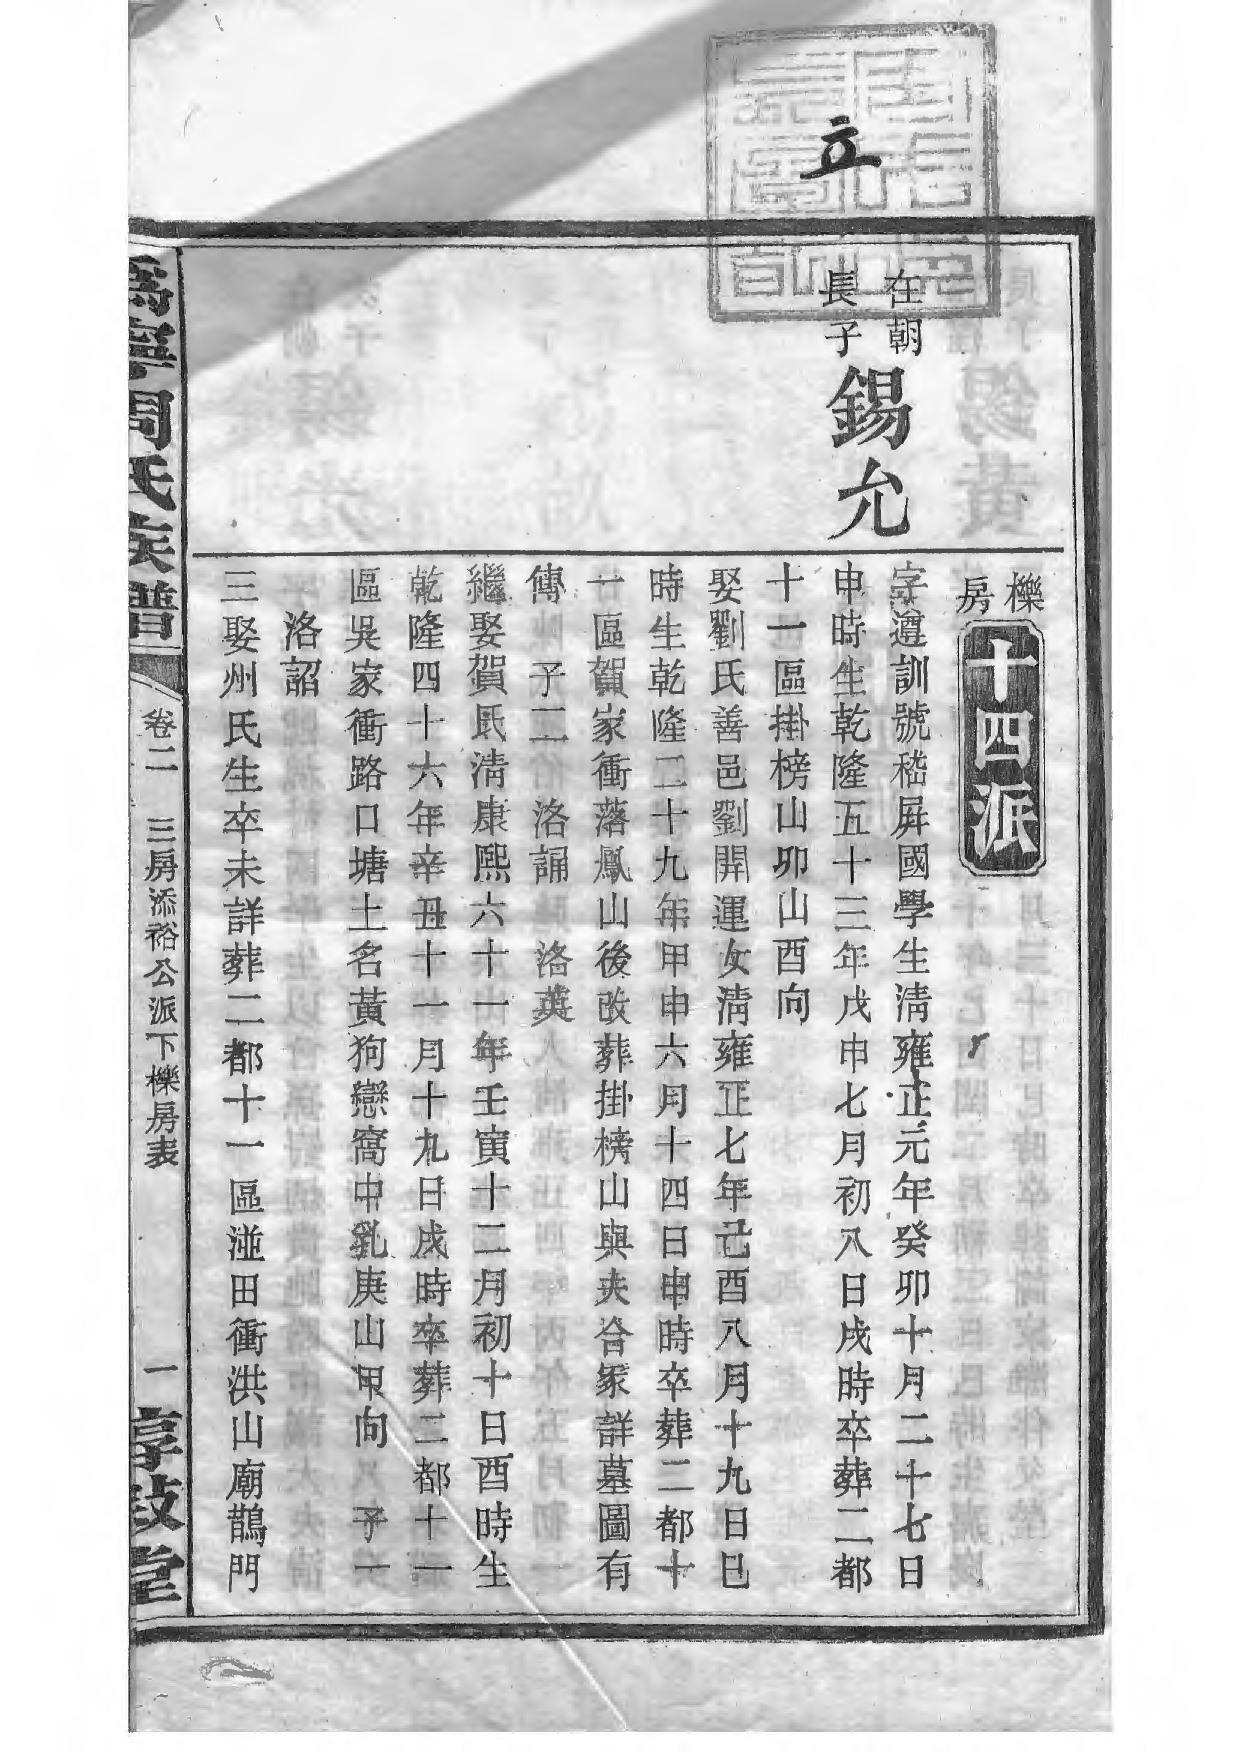 櫟房
十四派
在朝長子
錫允
字遵訓號嵇屛國學生淸雍正元年癸卯十月二十七日
申時生乾隆五十三年戊申七月初八日戌時卒葬二都
十一區掛榜山卯山酉向
娶劉氏善邑劉開運女淸雍正七年己酉八月十九日巳
時生乾隆二十九年甲申六月十四日申時卒葬二都十
一區賀家衝落鳳山後改葬掛榜山與夫合冢詳墓圖有
傳 子二 洛誦 洛英
繼娶賀氏淸康熙六十一年壬寅十二月初十日酉時生
乾隆四十六年辛丑十一月十九日戌時卒葬二都十一
區吳家衝路口塘土名黃狗戀窩中乳庚山甲向 子一
洛詔
三娶州氏生卒未詳葬二都十一區湴田衝洪山廟鵲門
寧周氏族譜
卷二 三房添裕公派下櫟房表
一
敦堂